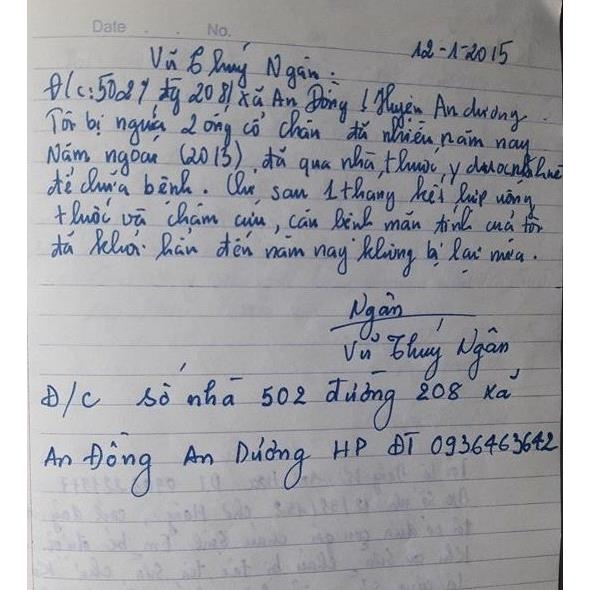 Date . . No.
12-1-2015
Vũ Thuý Ngân.
Đ/c: 502 đg 208 xã An Đồng Huyện An dương.
Tôi bị ngứa 2 ống cổ chân đã nhiều năm nay
Năm ngoái (2013) đã qua nhà thuốc y dược
để chữa bệnh. Chỉ sau 1 tháng kết hợp uống
thuốc và châm cứu, căn bệnh mãn tính của tôi
đã khỏi hẳn đến năm nay không bị lại nữa.
Ngân
Vũ Thuý Ngân
Đ/C số nhà 502 đường 208 xã
An Đồng An Dương HP ĐT 0936463642